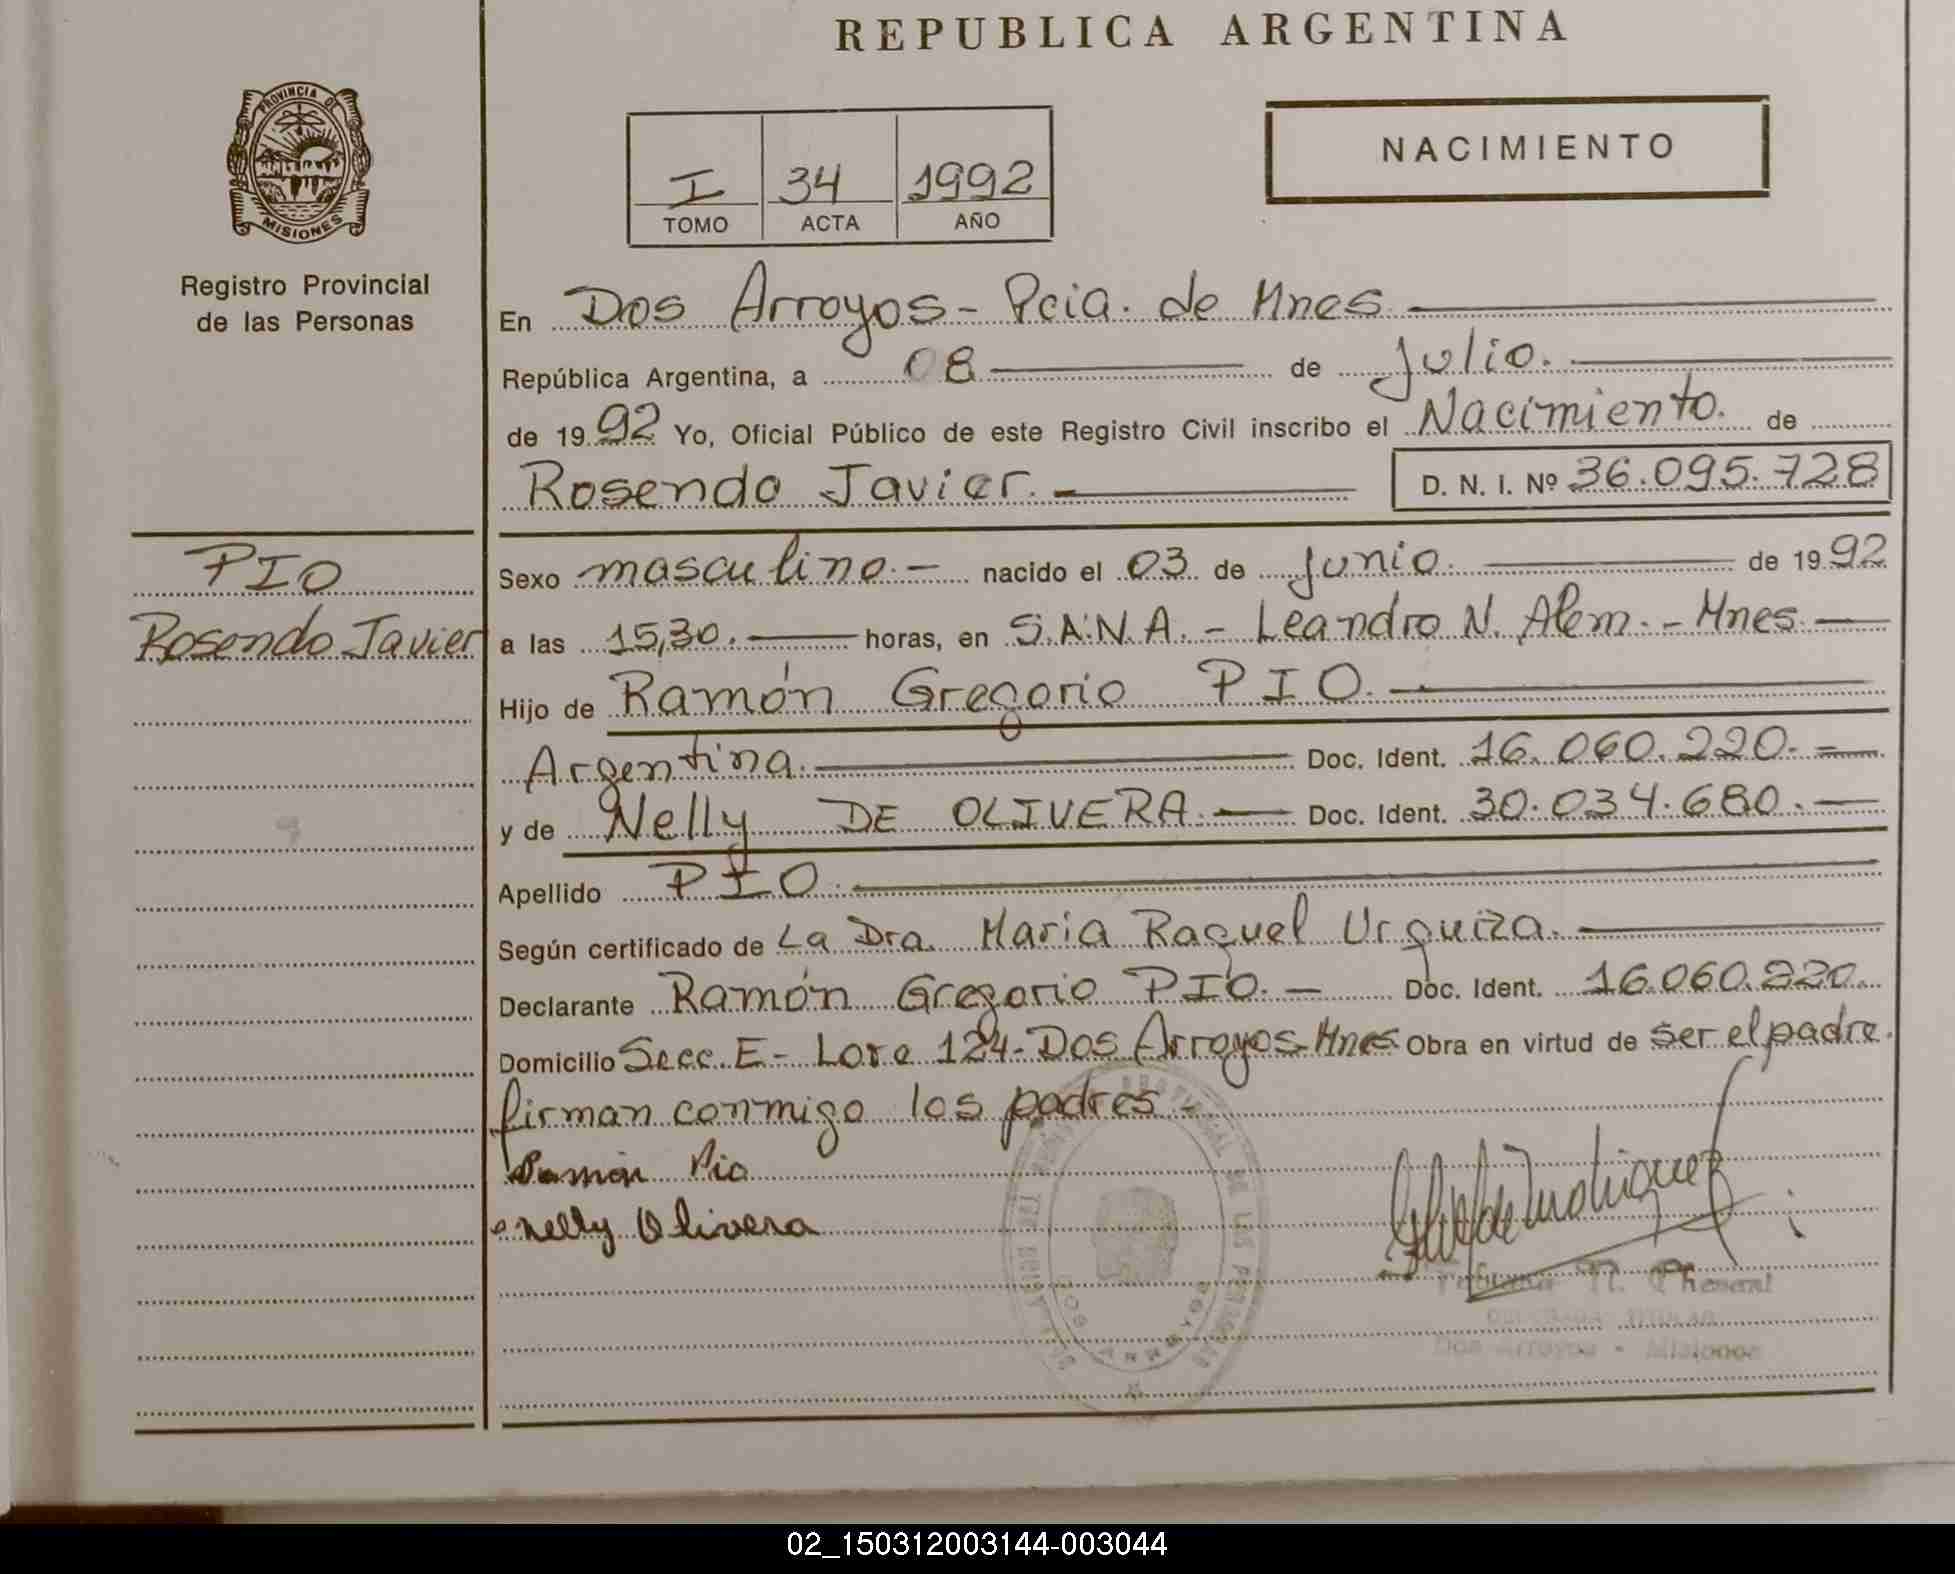 REPUBLICA ARGENTINA
PROVINCIA DE
MISIONES
Registro Provincial
de las Personas
I 34 1992
TOMO ACTA AÑO
NACIMIENTO
En Dos Arroyos - Pcia. de Mnes
República Argentina, a 08 de Julio.
de 1992 Yo, Oficial Público de este Registro Civil inscribo el Nacimiento. de
Rosendo Javier. D. N. I. Nº 36.095.728
PIO
Rosendo Javier
Sexo masculino.- nacido el 03 de junio. de 1992
a las 15,30. horas, en S.A.N.A. - Leandro N. Alem. - Mnes.
Hijo de Ramón Gregorio PIO.
Argentina. Doc. Ident. 16.060.220.-
y de Nelly DE OLIVERA. Doc. Ident. 30.034.680.
Apellido PIO.
Según certificado de La Dra. Maria Raquel Urquiza.
Declarante Ramón Gregorio PIO. - Doc. Ident. 16.060.220.
Domicilio Secc. E - Lote 124 - Dos Arroyos - Mnes Obra en virtud de ser el padre.
firman conmigo los padres -
Ramón Pio
Nelly Olivera
DOS ARROYOS
Dos Arroyos - Misiones
02_150312003144-003044